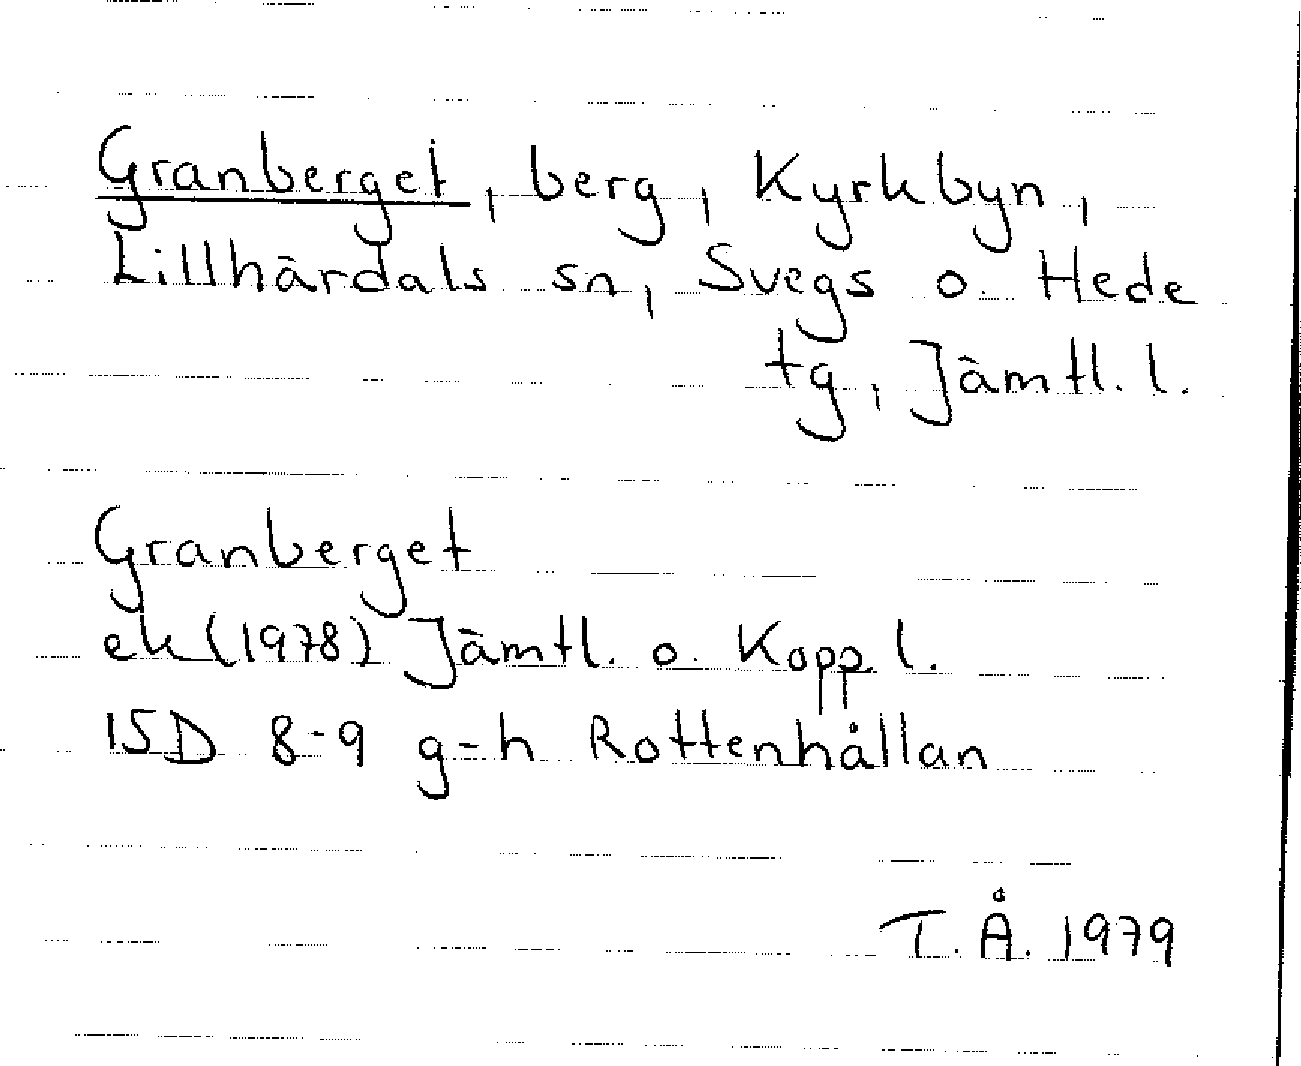 Granberget, berg, Kyrkbyn,
Lillhärdals sn, Svegs o. Hede
tg, Jämtl. l.
Granberget
ek (1978) Jämtl. o. Kopp. l.
15D 8-9 g-h Rottenhållan
T. Å. 1979